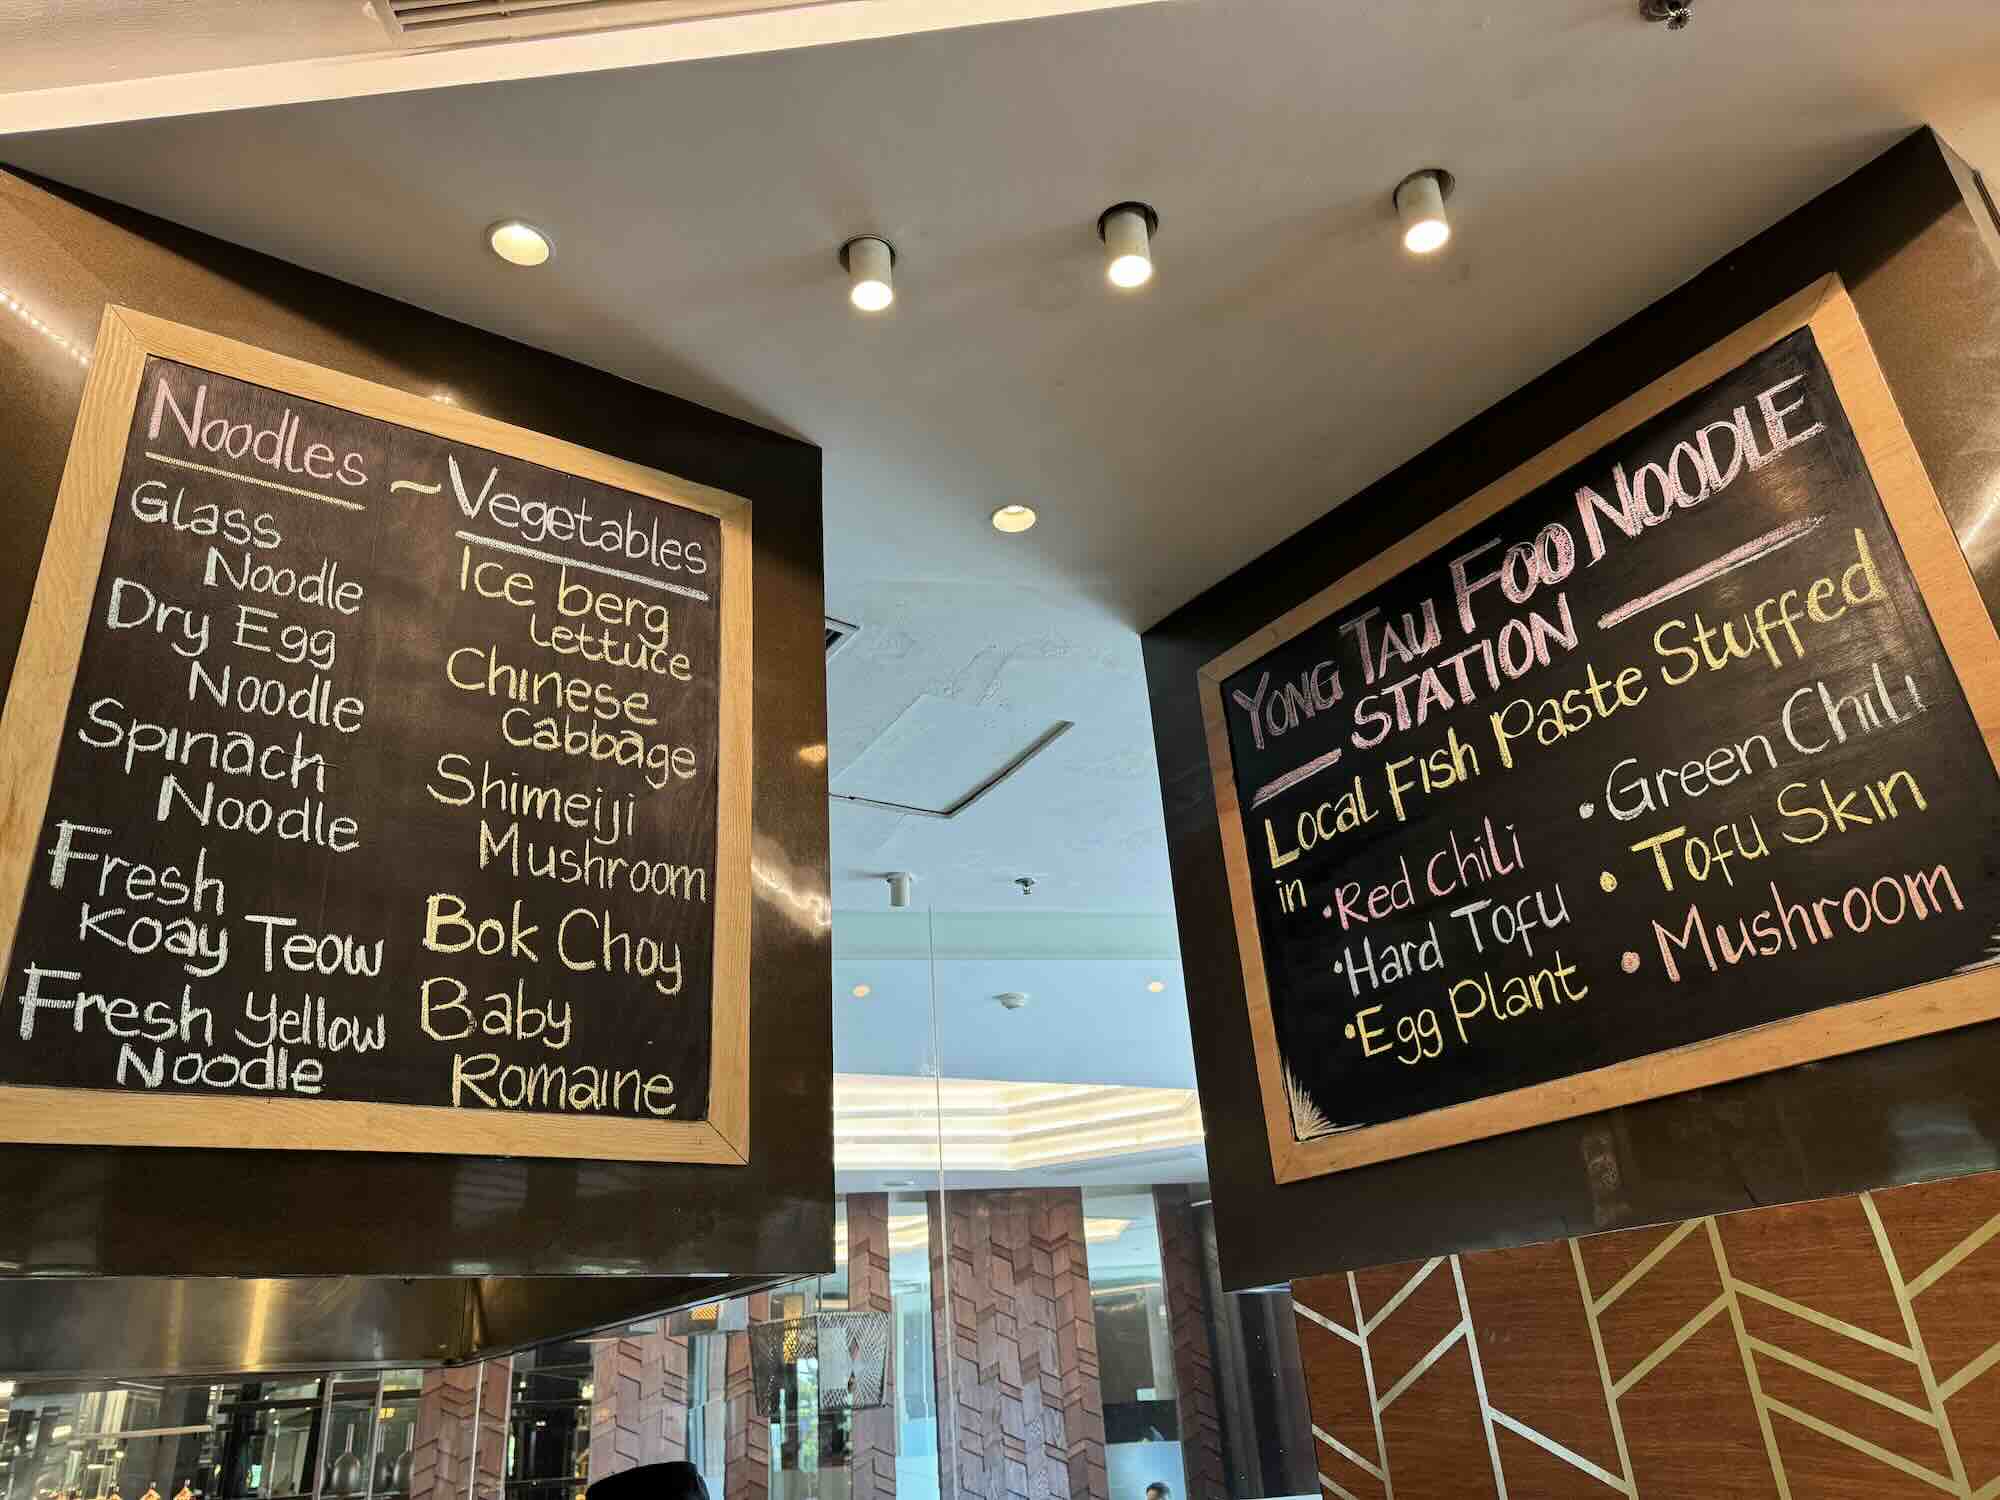 Noodles ~
Glass
Noodle
Dry Egg
Noodle
Spinach
Noodle
Fresh
Koay Teow
Fresh Yellow
Noodle
Vegetables
Ice berg
Lettuce
Chinese
Cabbage
Shimeiji
Mushroom
Bok Choy
Baby
Romaine
YONG TAU FOO NOODLE
STATION
Local Fish Paste Stuffed
in
• Red Chili
• Hard Tofu
• Egg Plant
• Green Chili
• Tofu Skin
• Mushroom